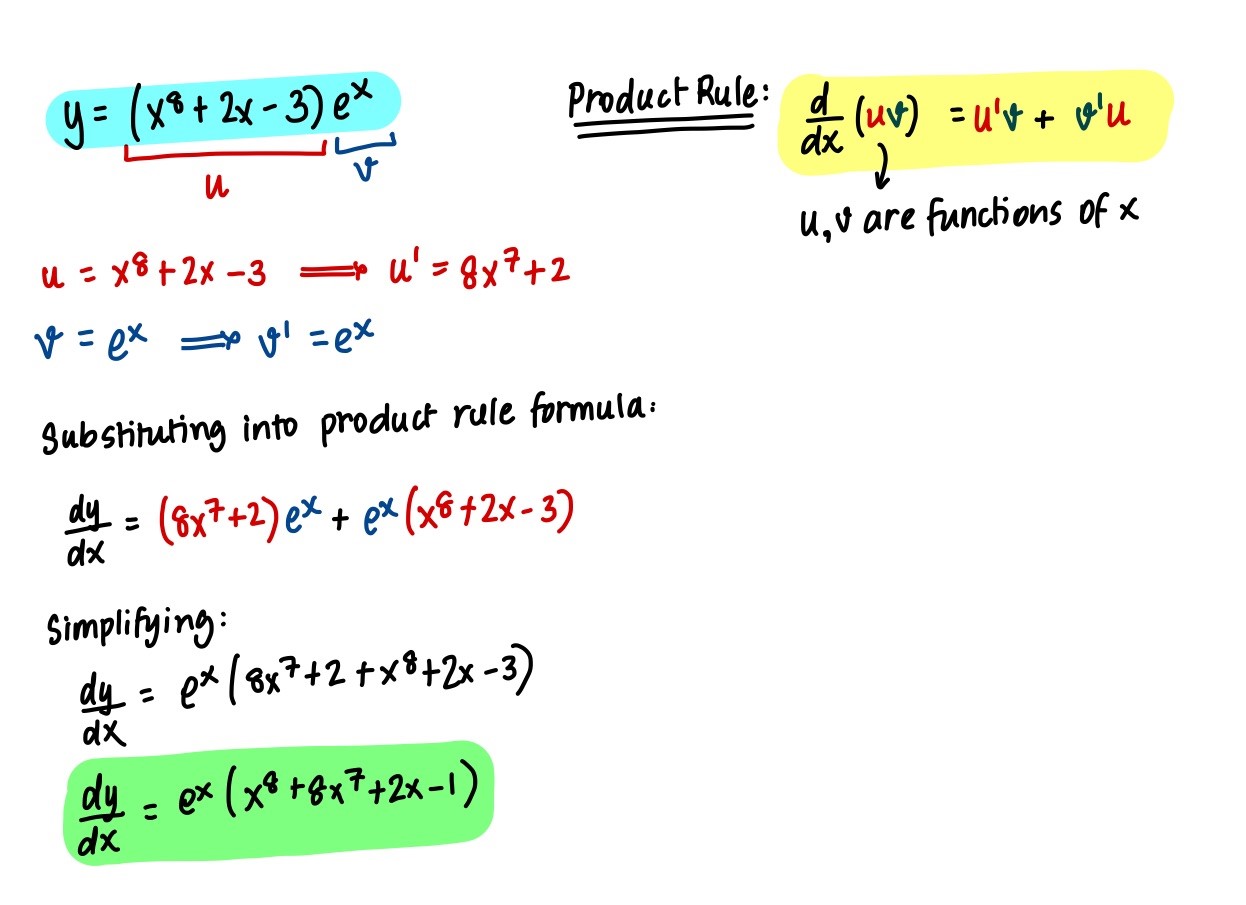 y = (x⁸ + 2x - 3) eˣ
u
v
Product Rule: d/dx (uv) = u'v + v'u
u, v are functions of x
u = x⁸ + 2x - 3 ⟹ u' = 8x⁷ + 2
v = eˣ ⟹ v' = eˣ
Substituting into product rule formula:
dy/dx = (8x⁷ + 2) eˣ + eˣ (x⁸ + 2x - 3)
Simplifying:
dy/dx = eˣ (8x⁷ + 2 + x⁸ + 2x - 3)
dy/dx = eˣ (x⁸ + 8x⁷ + 2x - 1)